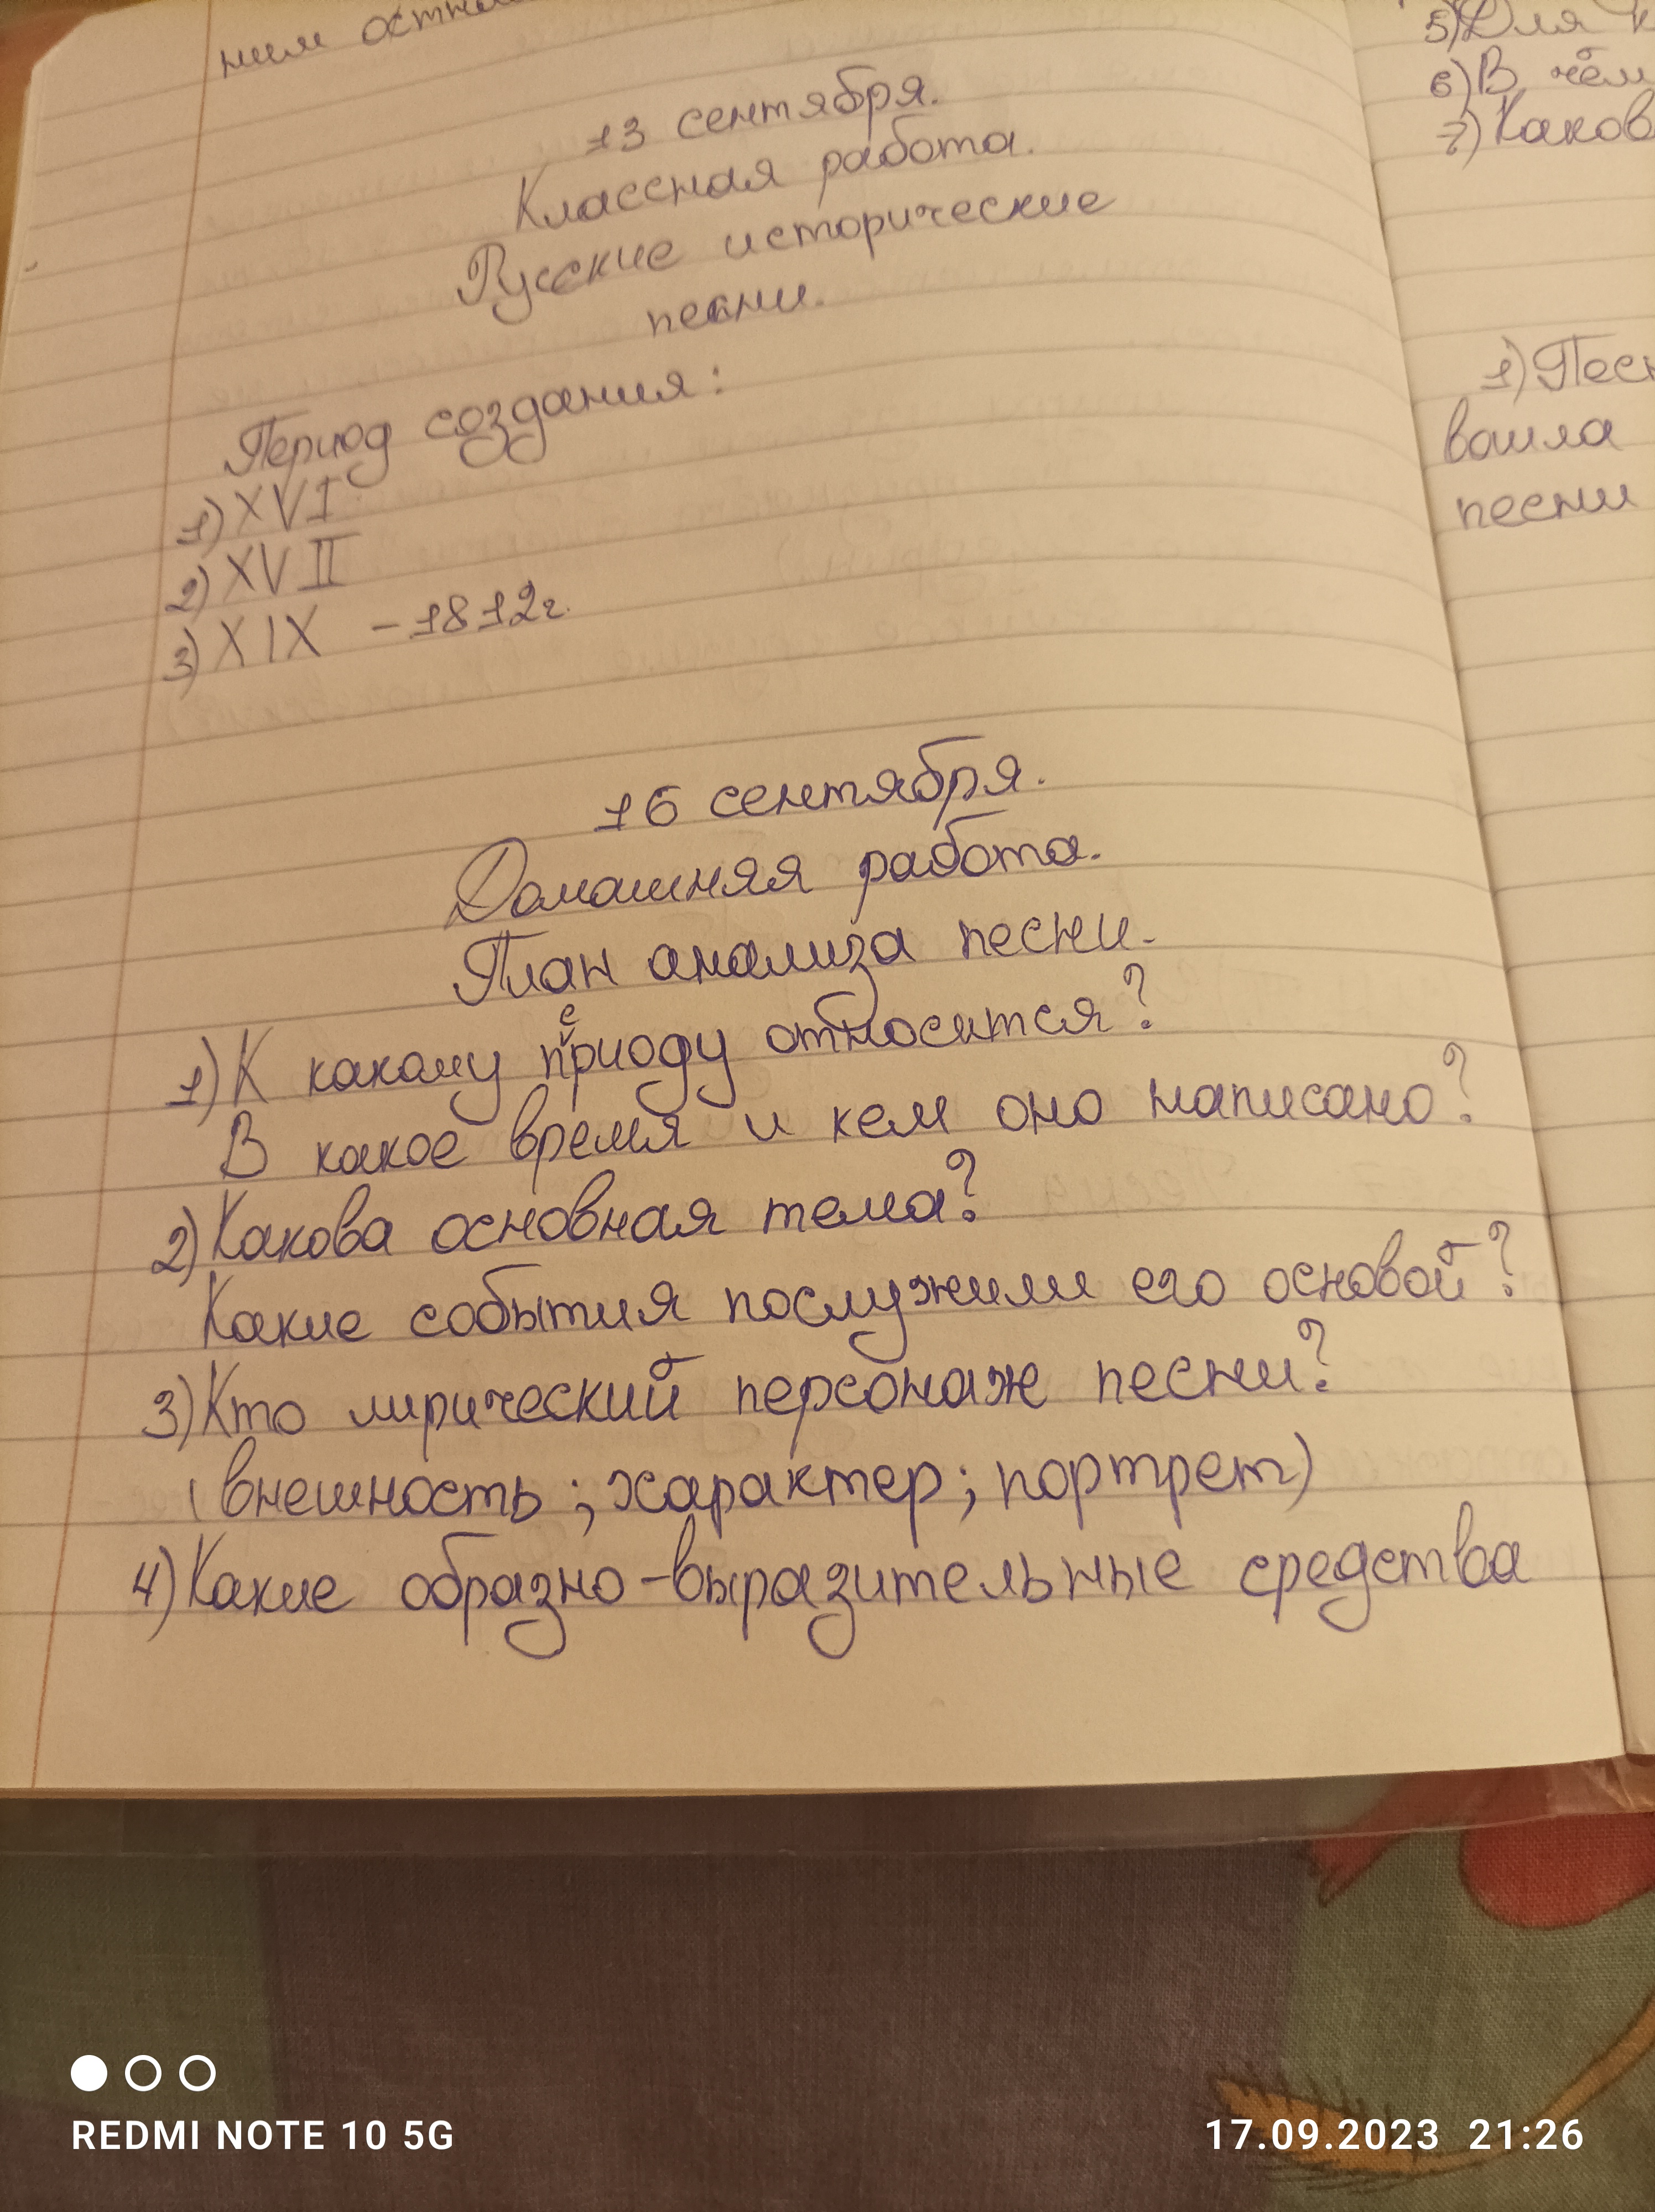 ним
13 сентября.
Классная работа.
Русские исторические
песни.
Период создания:
1) XVI
2) XVII
3) XIX - 1812г.
16 сентября.
Домашняя работа.
План анализа песни.
1) К какому периоду относится?
В какое время и кем оно написано?
2) Какова основная тема?
Какие события послужили его основой?
3) Кто лирический персонаж песни?
(внешность; характер; портрет)
4) Какие образно-выразительные средства
5) Для
6) В чём
7) Каков
1) Песн
вошла
песни
REDMI NOTE 10 5G
17.09.2023 21:26